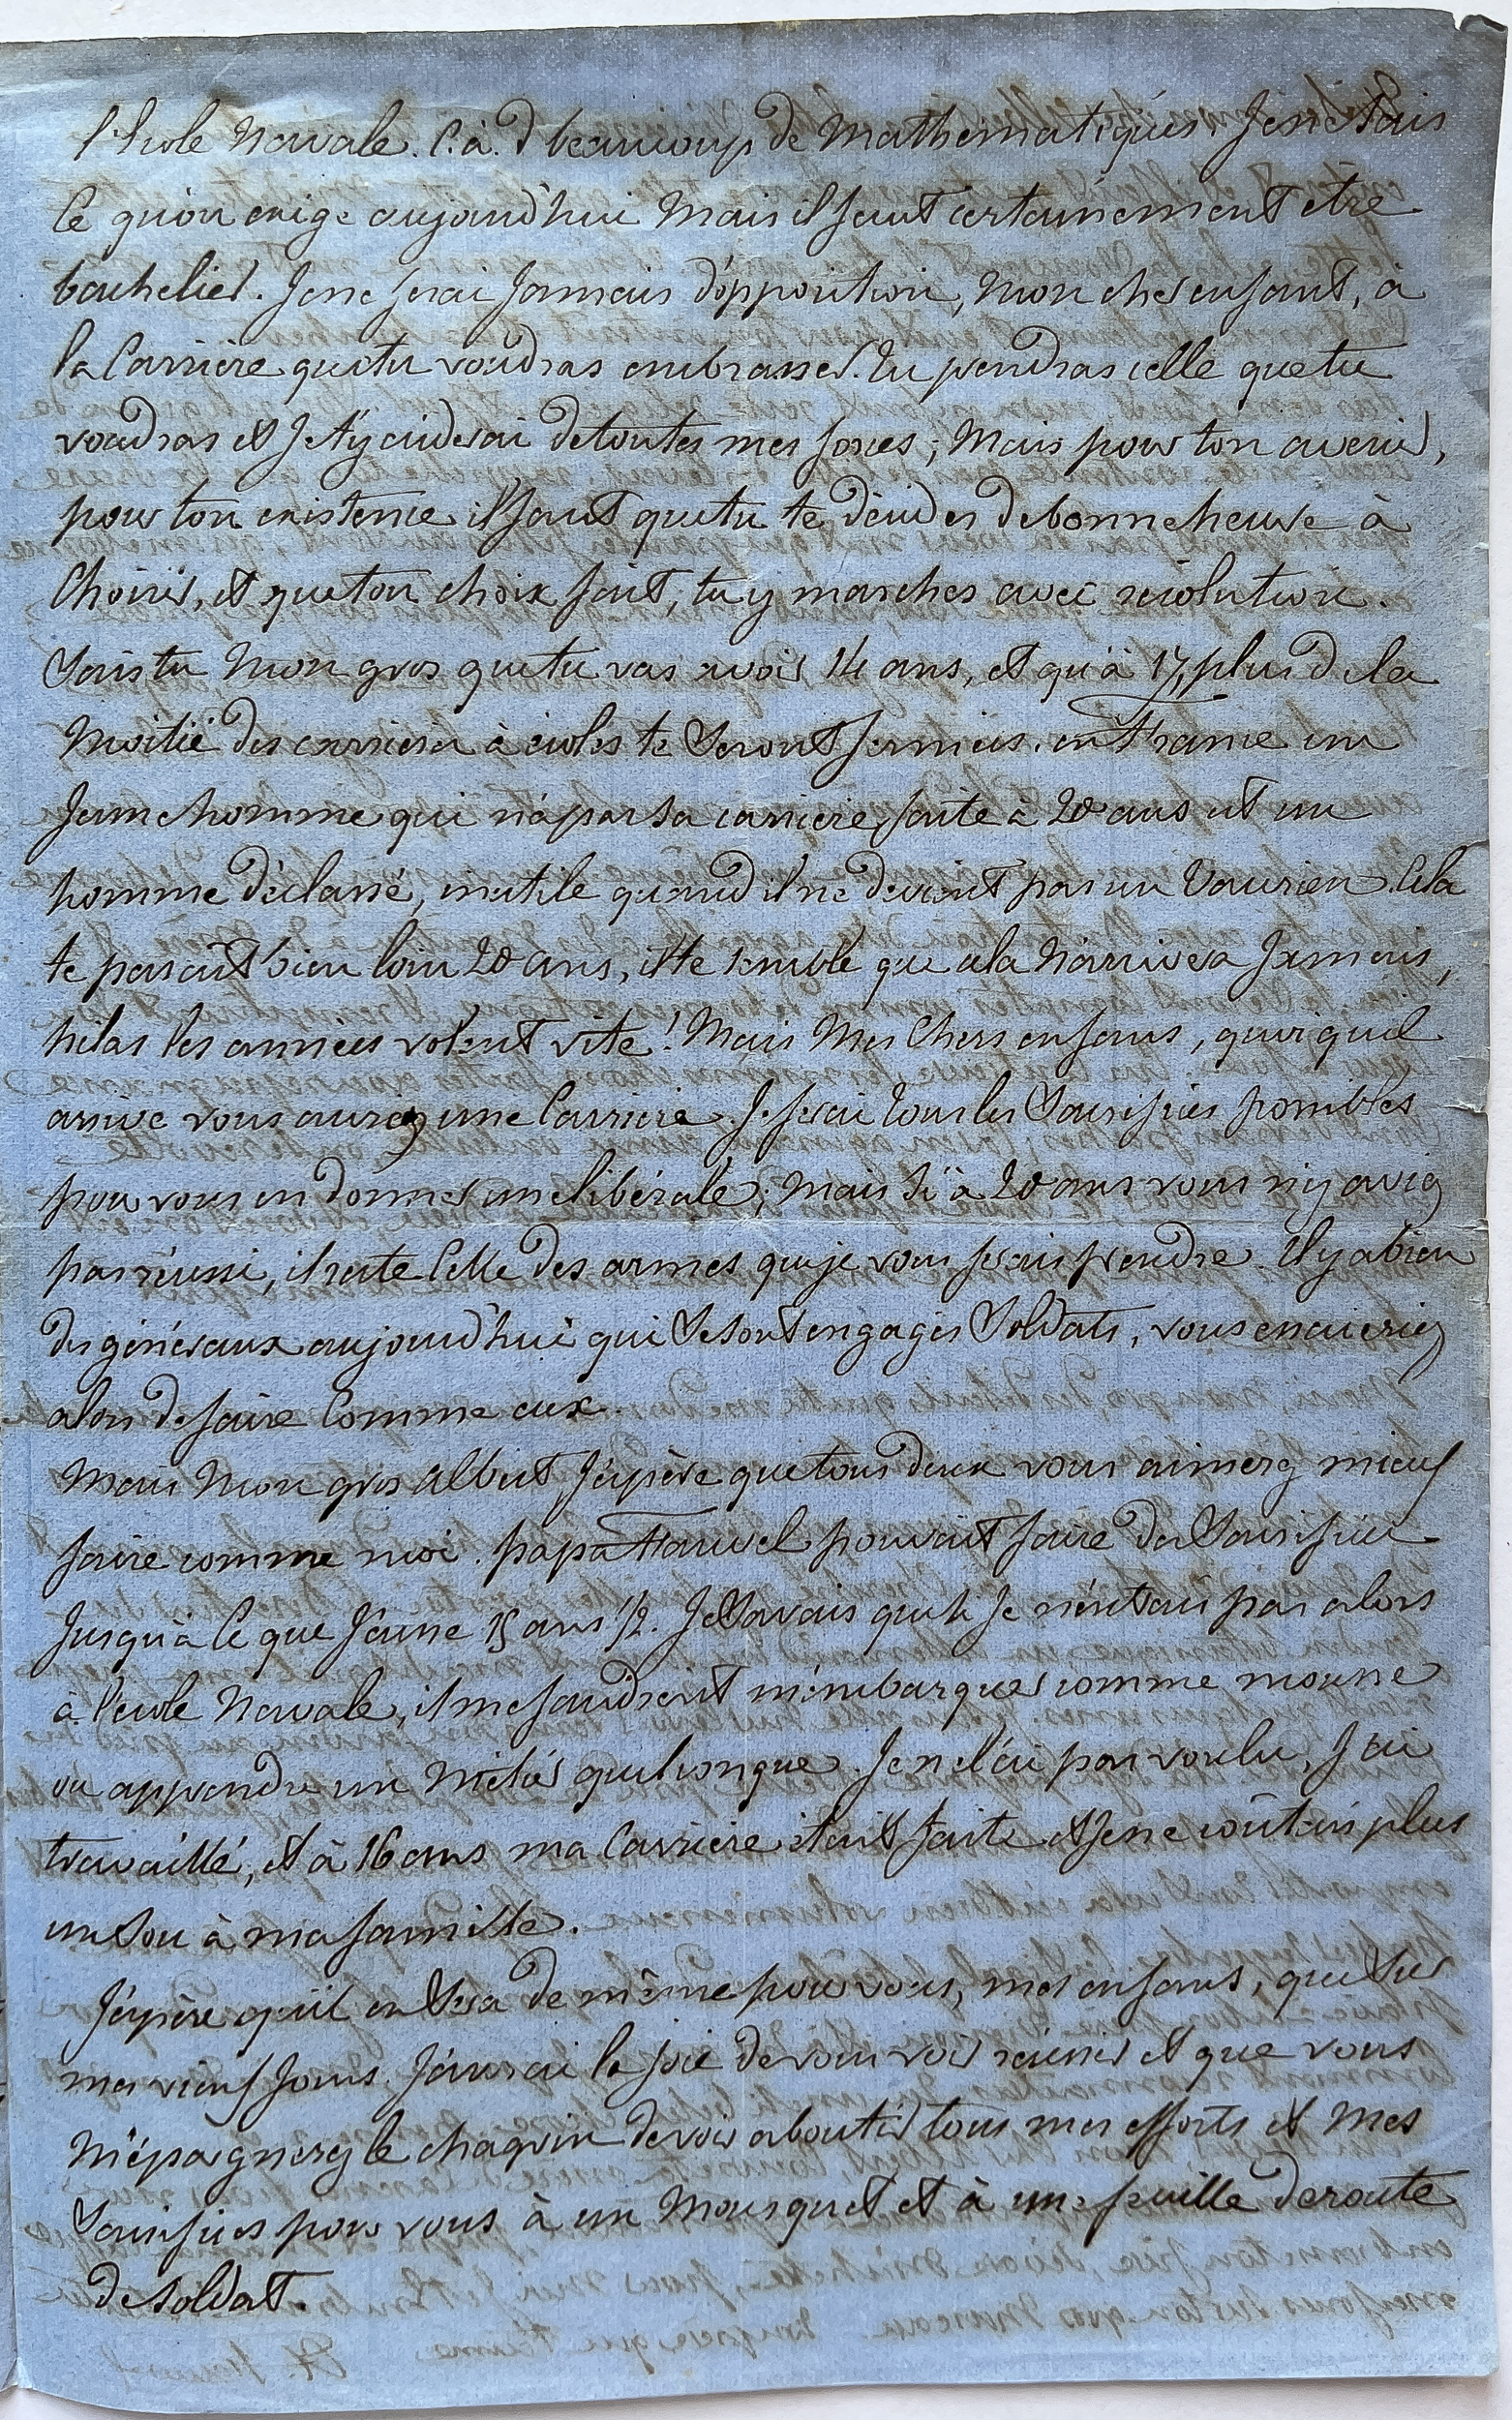 l'École Navale. C. à. d beaucoup de Mathématiques. Je ne sais
ce qu'on exige aujourd'hui Mais il faut certainement être
bachelier. Je ne ferai jamais d'opposition, Mon cher enfant, à
la Carrière que tu voudras embrasser. Tu prendras celle que tu
voudras et je t'y aiderai de toutes mes forces; Mais pour ton avenir,
pour ton existence il faut que tu te décides de bonne heure à
Choisir, et que ton choix fait, tu y marches avec résolution.
Sais tu Mon gros que tu vas avoir 14 ans, et qu'à 17, plus de la
Moitié des carrières à écoles te seront fermées. en France un
Jeune homme qui n'a pas sa carrière faite à 20 ans est un
homme déclassé, inutile quand il ne devient pas un Vaurien. Cela
te parait bien loin 20 ans, il te semble que cela N'arrivera jamais,
hélas les années volent vite! Mais Mes Chers enfans, quoiqu'il
arrive vous aurez une Carrière. Je ferai tous les Sacrifices possibles
pour vous en donner une libérale; Mais si à 20 ans vous n'y aviez
pas réussi, il reste Celle des armes que je vous ferais prendre. Il y a bien
des généraux aujourd'hui qui se sont engagés Soldats, vous essaieriez
alors de faire Comme eux.
Mais Mon gros Albert J'espère que tous deux vous aimerez mieux
faire comme moi. papa Hauvel pouvait faire des Sacrifices
Jusqu'à Ce que J'eusse 15 ans 1/2. Je Savais que si Je n'entrais pas alors
à l'école Navale, il me faudrait m'embarquer comme mousse
ou apprendre un Métier quelconque. Je ne l'ai pas voulu, J'ai
travaillé, et à 16 ans ma Carrière était faite et Je ne coûtais plus
un Sou à ma famille.
J'espère qu'il en Sera de même pour vous, mes enfans, que Sur
mes vieux Jours J'aurai la joie de vous voir réussir et que vous
M'épargnerez le chagrin de voir aboutir tous mes efforts et Mes
Sacrifices pour vous à un Mousquet et à une feuille de route
de Soldat.